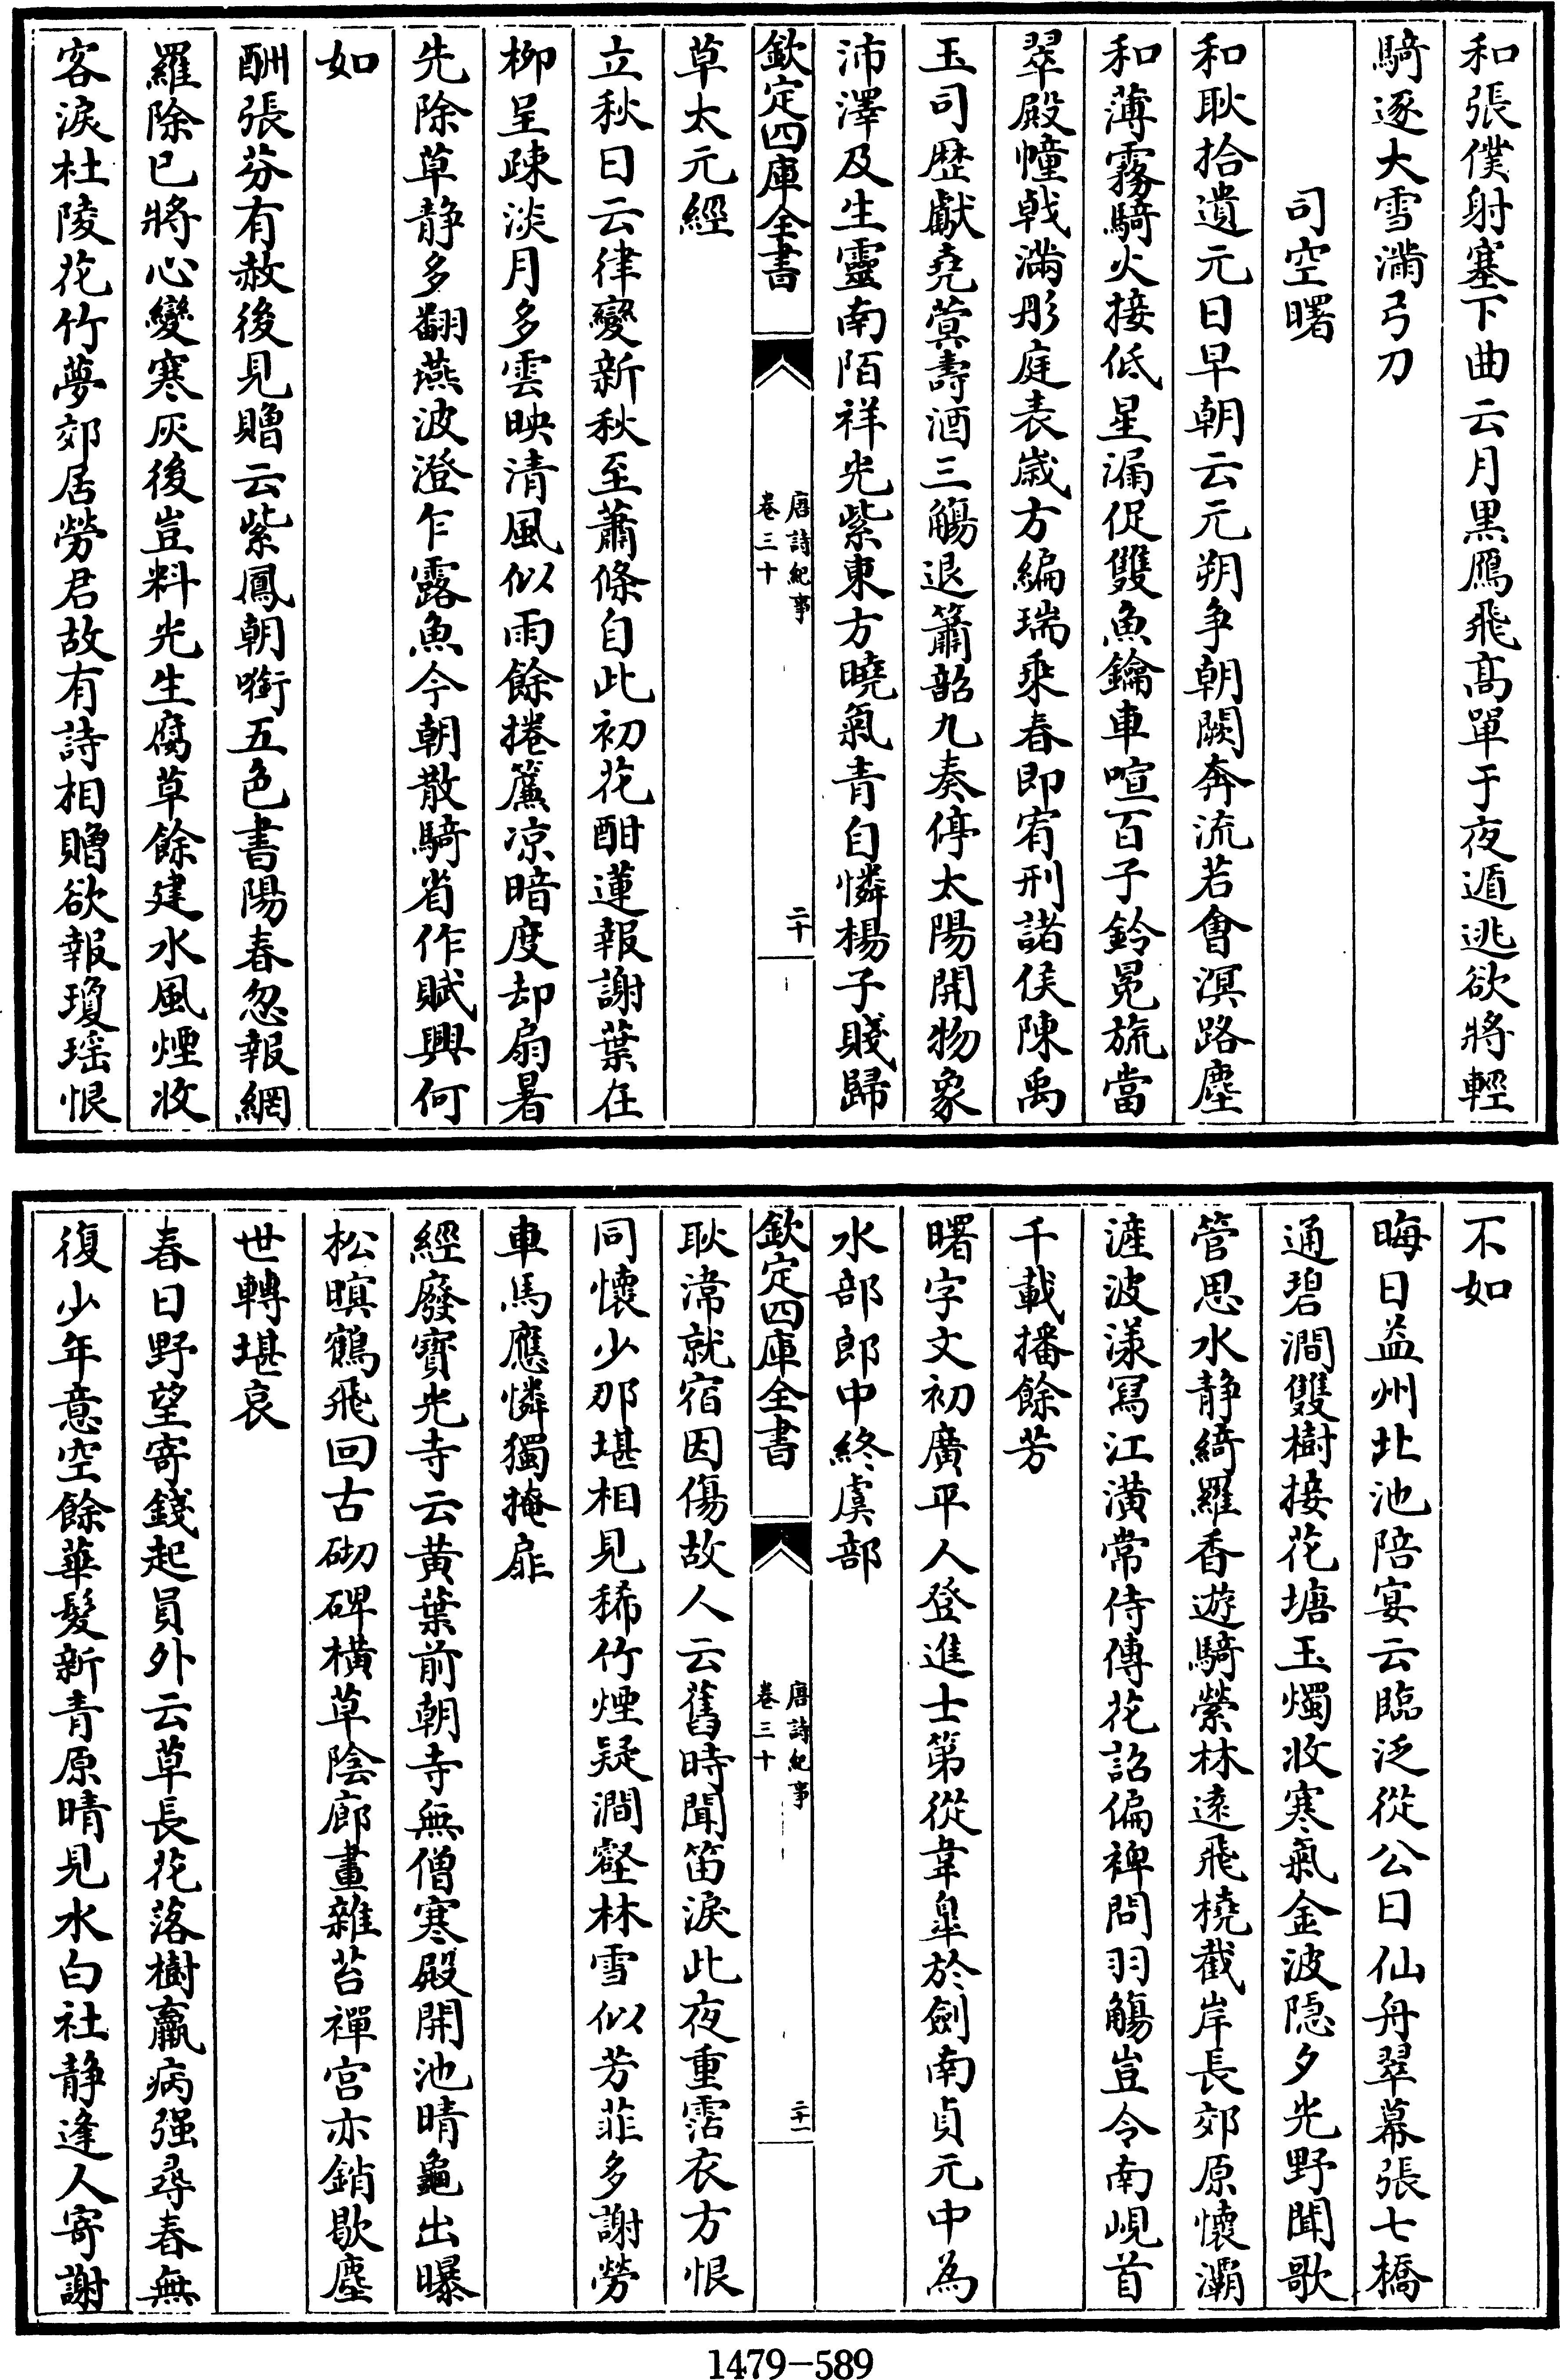 和張僕射塞下曲云月黒鴈飛髙單于夜遁逃欲將輕
騎逐大雪滿弓刀
司空曙
和耿拾遺元日早朝云元朔争朝闕奔流若會溟路塵
和薄霧騎火接低星漏促雙魚鑰車喧百子鈴冕旒當
翠殿幢戟滿彤庭表歲方編瑞乘春即宥刑諸侯陳禹
玉司歴獻堯蓂壽酒三觴退簫韶九奏停太陽開物象
沛澤及生靈南陌祥光紫東方曉氣青自憐楊子賤歸
欽定四庫全書
唐詩紀事
卷三十
二十
草太元經
立秋日云律變新秋至蕭條自此初花酣蓮報謝葉在
柳呈疎淡月多雲映清風似雨餘捲簾凉暗度却扇暑
先除草静多翻燕波澄乍露魚今朝散騎省作賦興何
如
酬張芬有赦後見贈云紫鳳朝㗸五色書陽春忽報網
羅除已將心變寒灰後豈料光生腐草餘建水風煙收
客淚杜陵花竹夢郊居勞君故有詩相贈欲報瓊瑶恨
不如
晦日益州北池陪宴云臨泛從公日仙舟翠幕張七橋
通碧澗雙樹接花塘玉燭收寒氣金波隠夕光野聞歌
管思水静綺羅香遊騎縈林逺飛橈截岸長郊原懷灞
滻波漾寫江潢常侍傳花詔偏裨問羽觴豈令南峴首
千載播餘芳
曙字文初廣平人登進士第從韋臯於劍南貞元中為
水部郎中終虞部
欽定四庫全書
唐詩紀事
卷三十
二十一
耿湋就宿因傷故人云舊時聞笛淚此夜重霑衣方恨
同懷少那堪相見稀竹煙疑澗壑林雪似芳菲多謝勞
車馬應憐獨掩扉
經廢寳光寺云黄葉前朝寺無僧寒殿開池晴龜出曝
松暝鶴飛回古砌碑横草陰廊畫雜苔禪宫亦銷歇塵
世轉堪哀
春日野望寄錢起員外云草長花落樹羸病强尋春無
復少年意空餘華髮新青原晴見水白社静逢人寄謝
1479-589